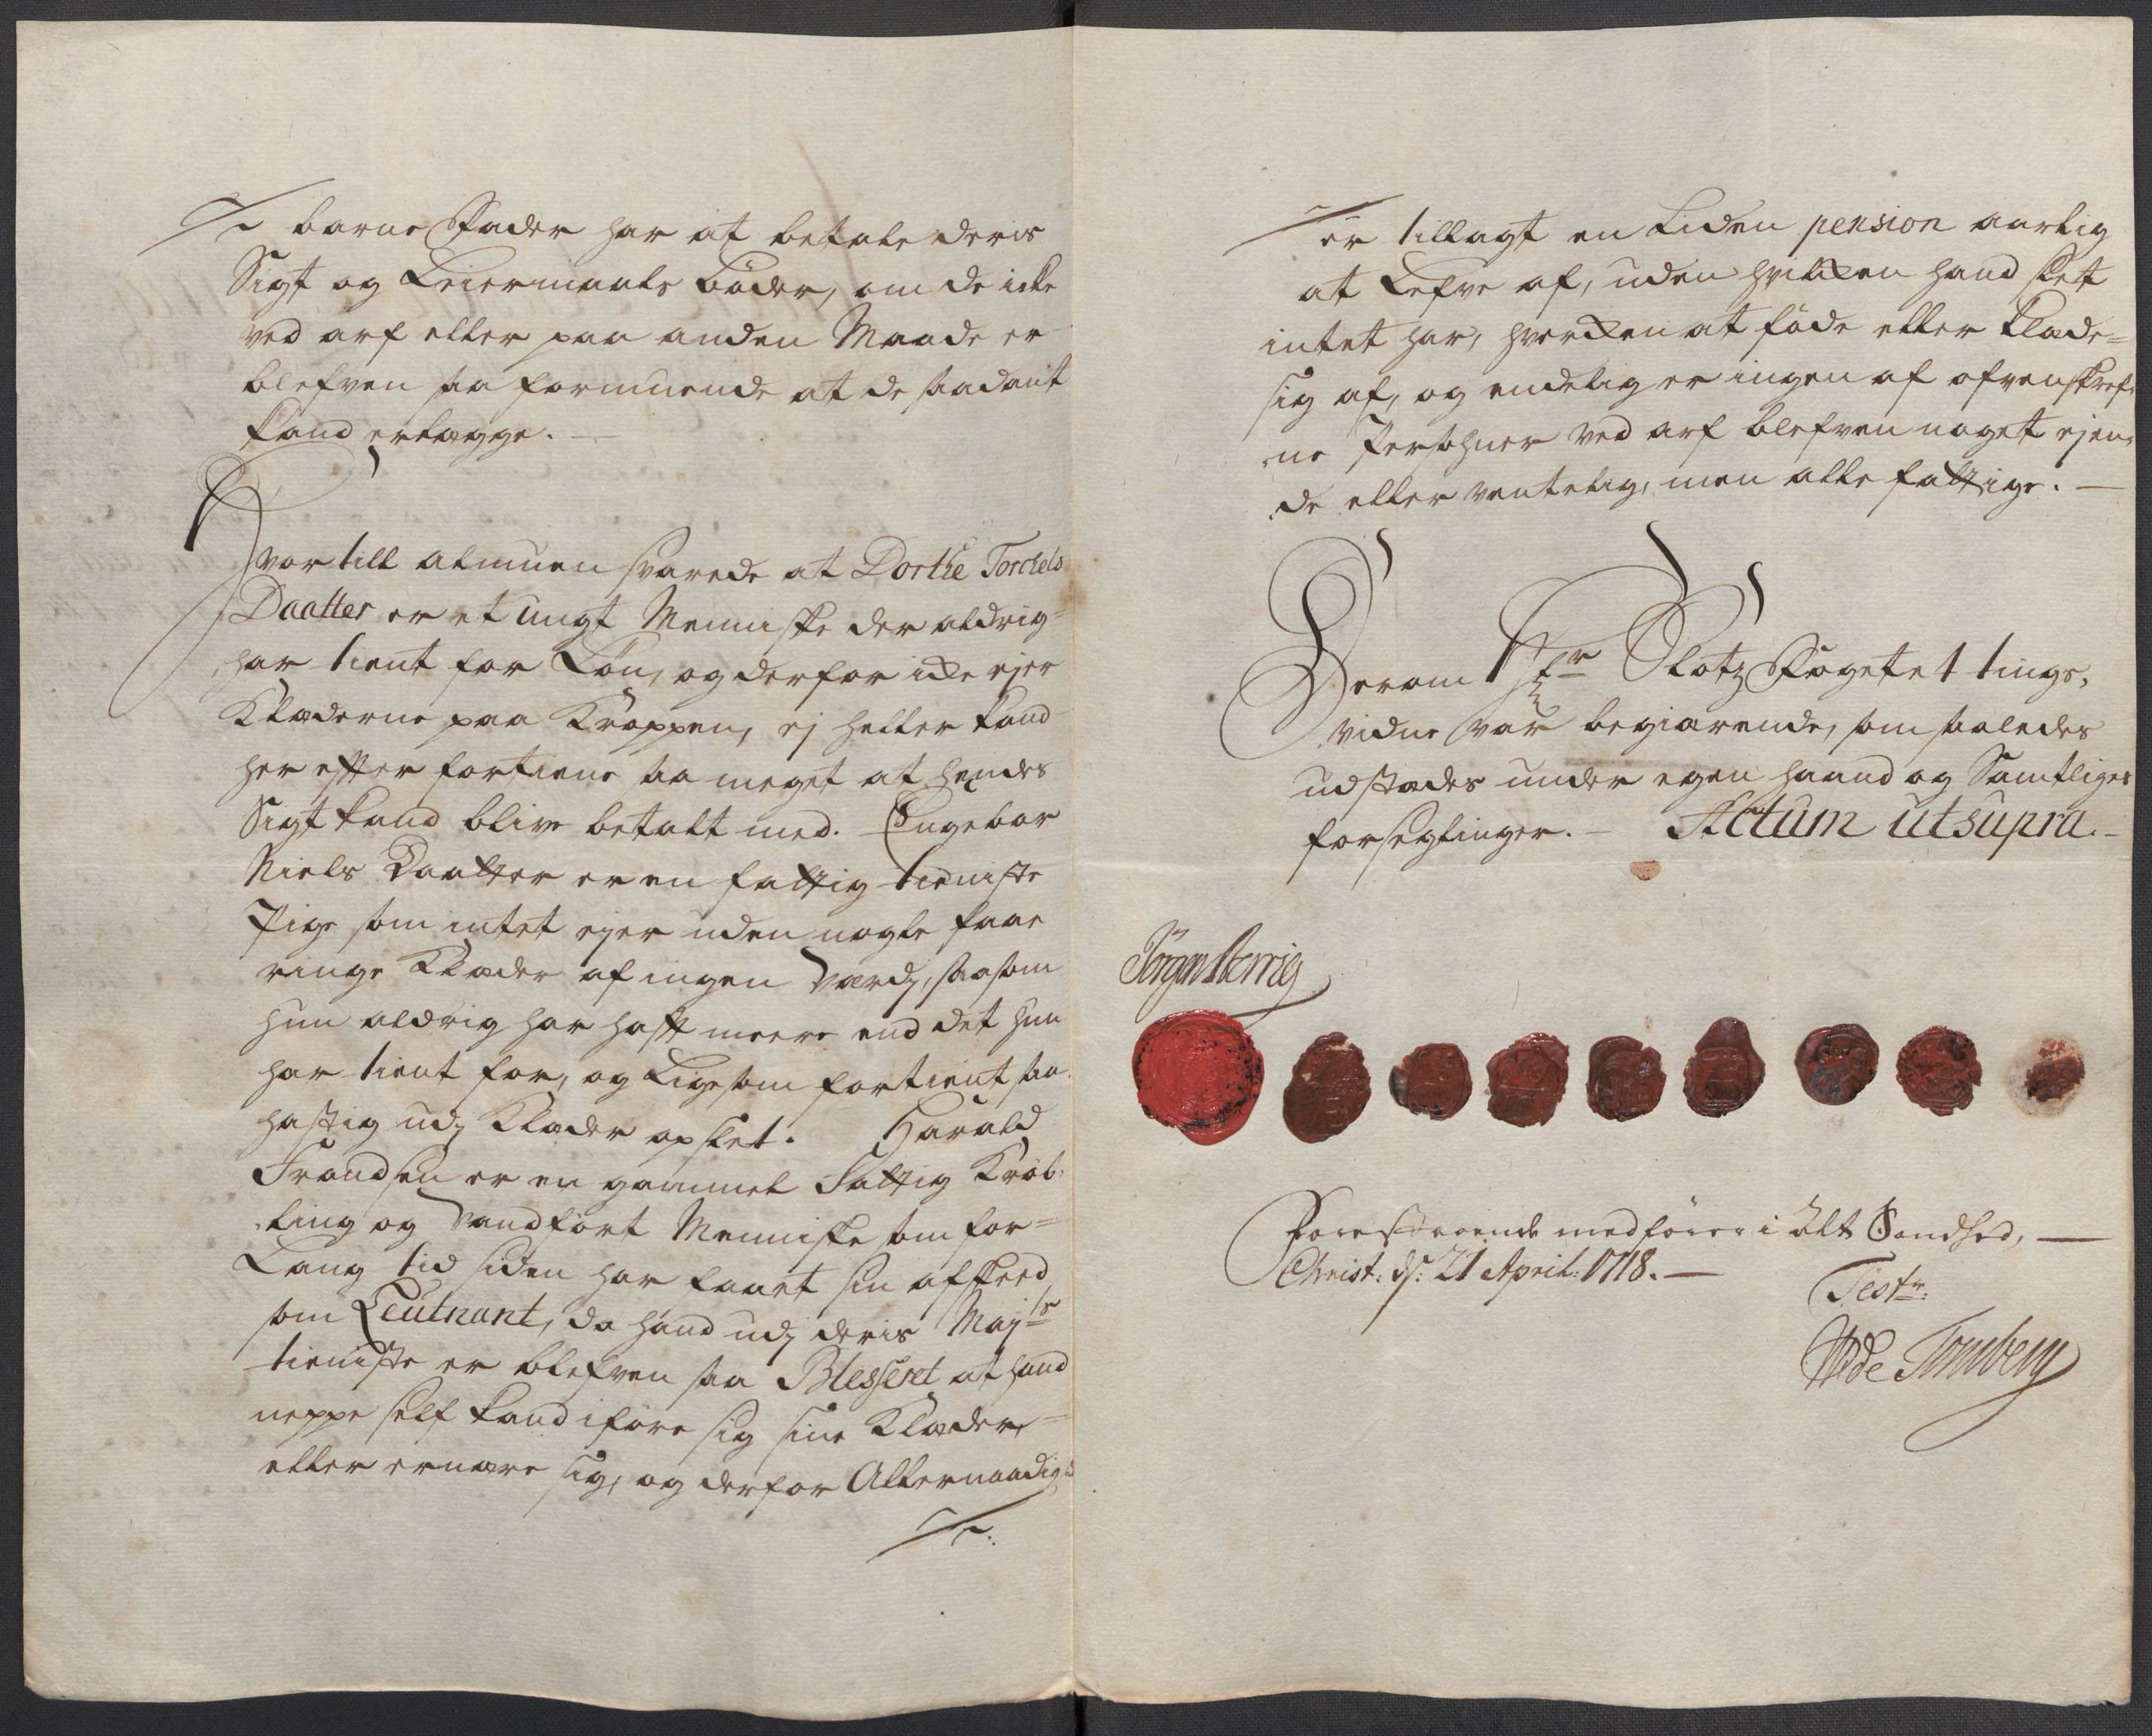 barne Fader har at betale deris
Sigt og Leiermaals böder, om de icke
ved arf eller paa anden Maade er
blefven saa formuende at de saadant
kand erlægge.
Hvor till almuen svarede at Dorthe Torckels
Daatter er et ungt Menniske der aldrig
har tient for Lön, og derfor icke ejer
Klæderne paa Kroppen, ej heller kand
her effter fortiene saa meget at hendes
Sigt kand blive betalt med. Engebor
Niels Daatter er en fattig tieniste
Pige som intet ejer uden nogle faae
ringe Klæder af ingen Værdj, saasom
hun aldrig har hafft meere end det hun
har tient for, og Ligesom fortient saa
hastig udj Klæder opslet. Harald
Frandsen er en gammel Fattig Kröb-
ling og Vandfört Menniske som for
Lang tid siden har faaet sin afskeed
som Leutnant, da hand udj deris Majts
tieniste er blefven saa Blesseret at hand
neppe self kand iföre sig sine Klæder
eller ernære sig, og derfor Allernaadigst
er tillagt en Liden pension aarlig
at Lefve af, uden hvilcken hand slet
intet har, hvercken at föde eller klæde
sig af, og endelig er ingen af ofvenskref-
ne Persohner ved arf blefven noget ejen-
de eller ventelig, men alle fattige.
Herom Hr Slotz Fogetet tings-
vidne var begiærende, som saaledes
udstædes under egen haand og Samtliges
forseglinger. Actum ut supra.
Jörgen Herrig
Forestaaende medfører i alt Sandhed,
Christ: ds: 21 April: 1718.
Test: